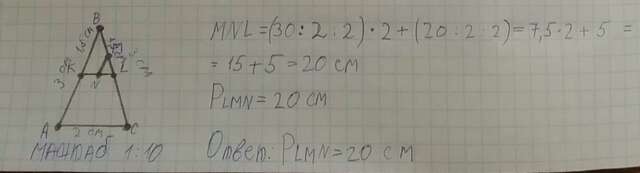 B
1,5 см
3 см
3 см
K
L
N
A
2 см
C
МАСШТАБ 1:10
MNL=(30:2:2)·2+(20:2:2)=7,5·2+5=
=15+5=20 см
PLMN=20 см
Ответ: PLMN=20 см